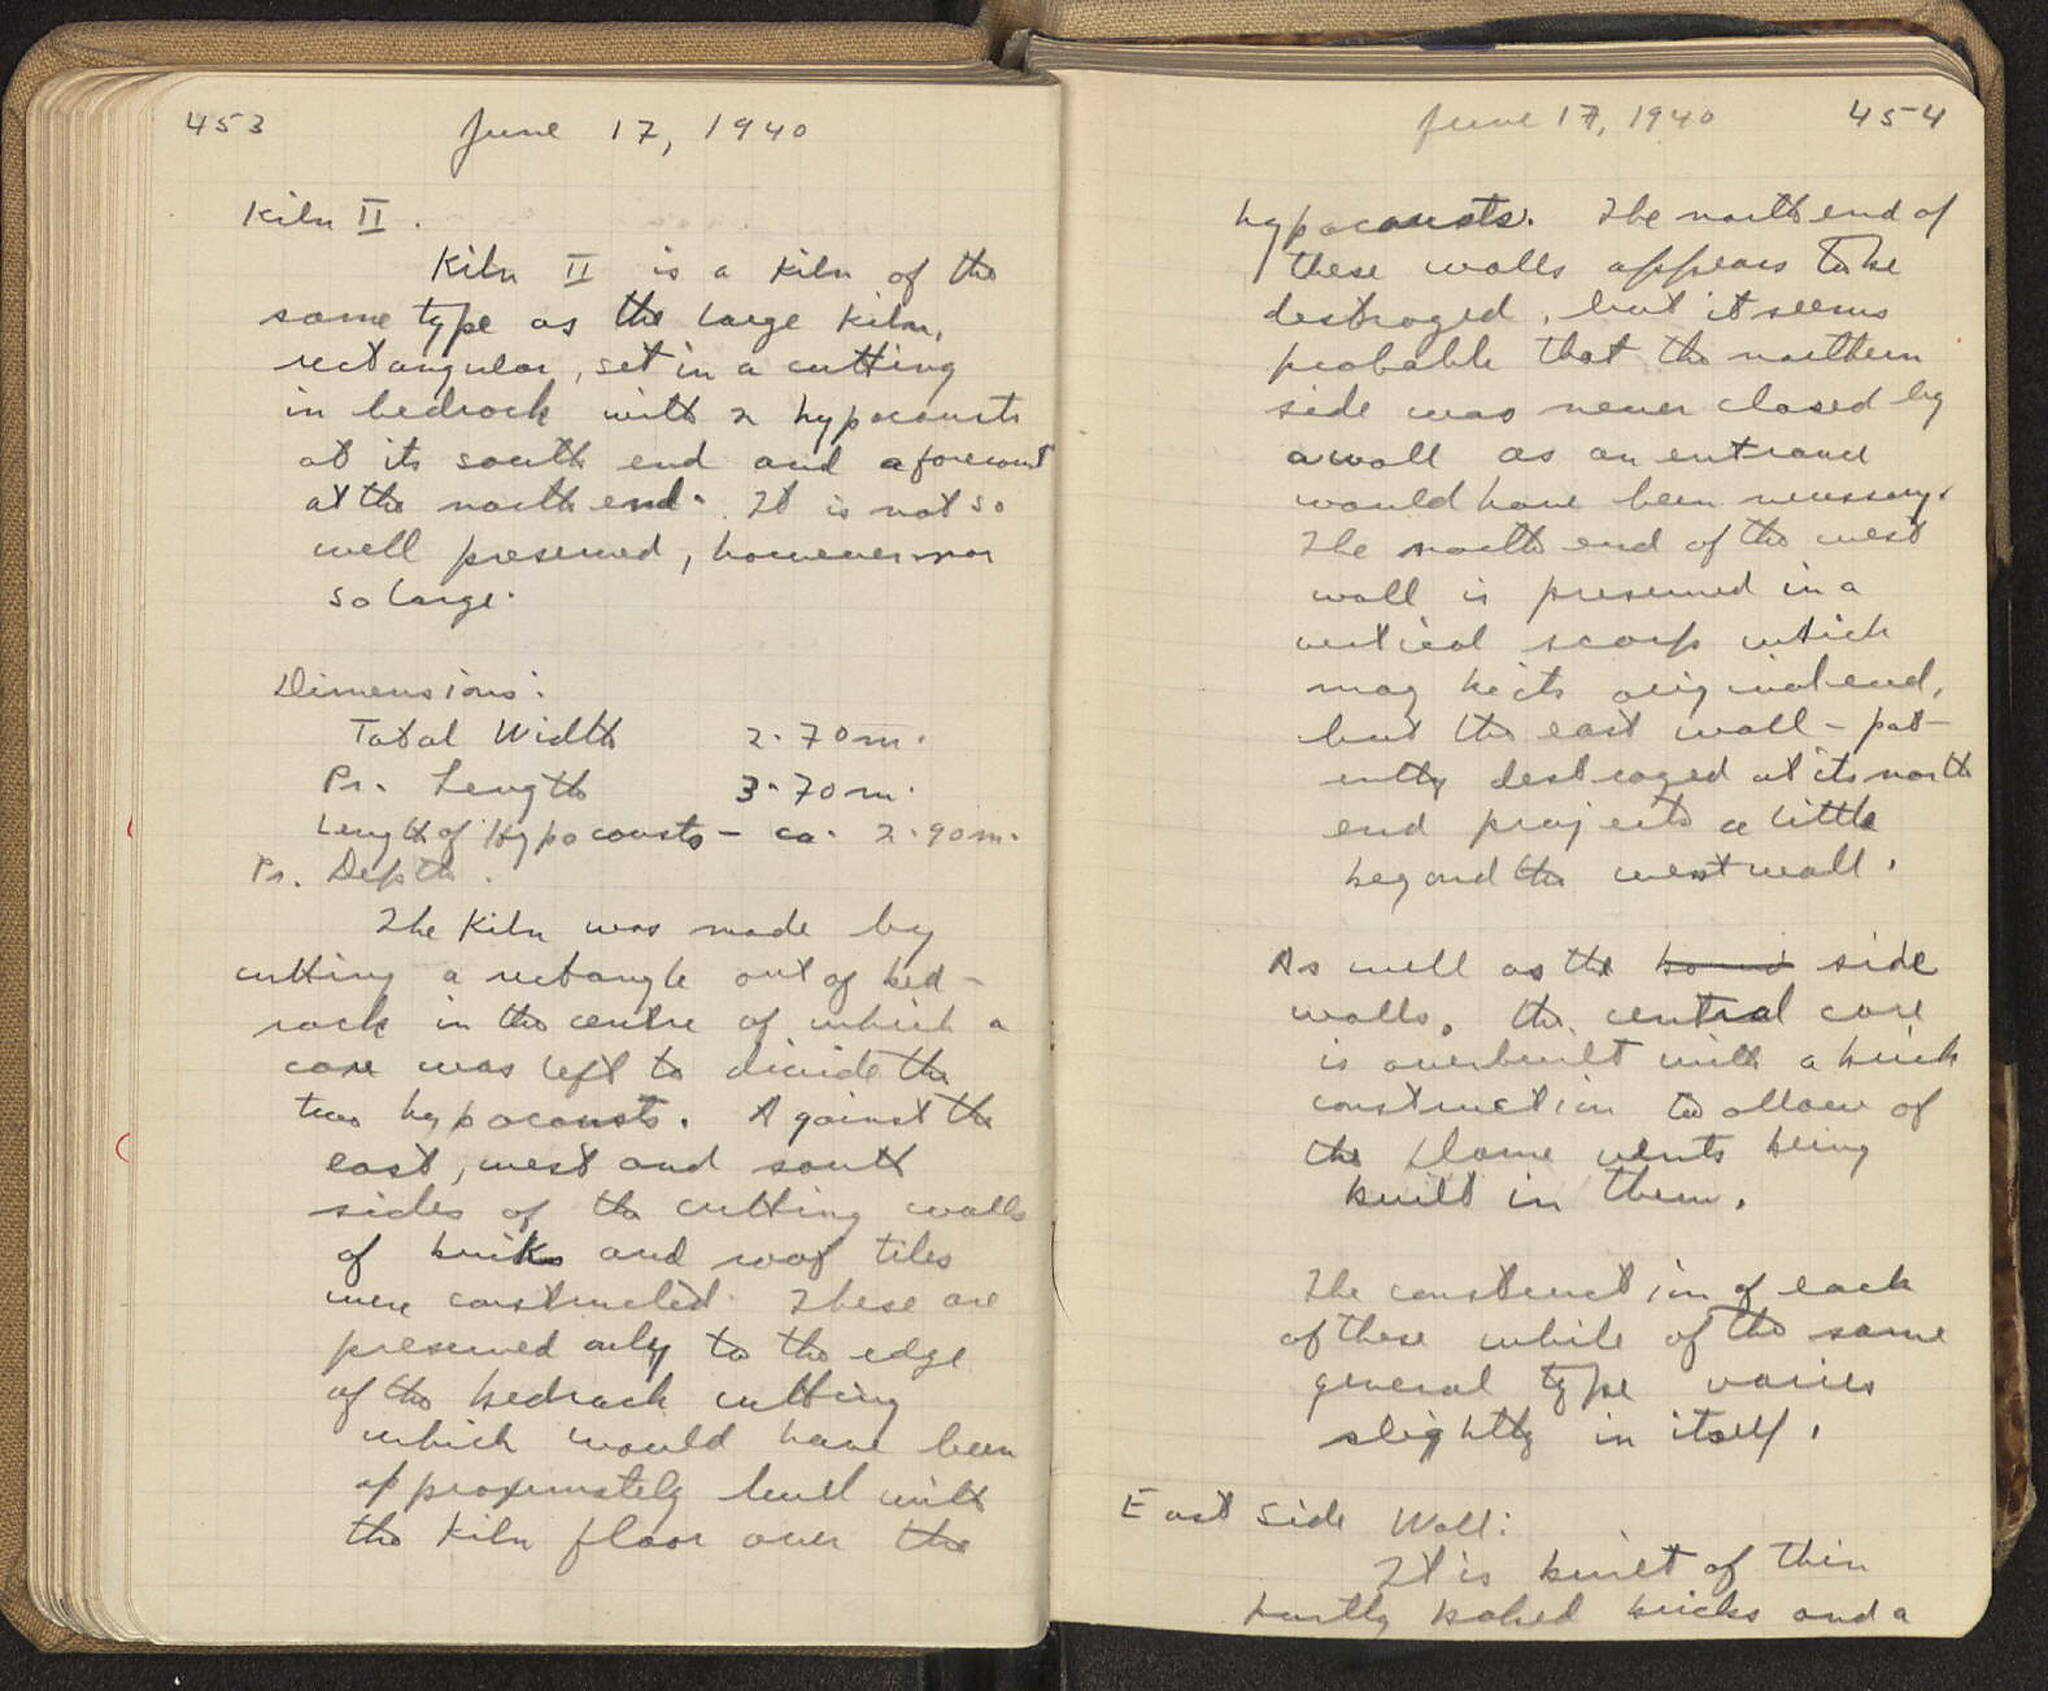 453
June 17, 1940
Kiln II.
Kiln II is a kiln of the
same type as the large kiln,
rectangular, set in a cutting
in bedrock with 2 hypocausts
at its south end and a forecourt
at the north end. It is not so
well preserved, however nor
so large.
Dimensions:
Total Width 2.70m.
Pr. Length 3.70m.
Length of Hypocausts - ca. 2.90m.
Pr. Depth.
The Kiln was made by
cutting a rectangle out of bed-
rock in the centre of which a
core was left to divide the
two hypocausts. Against the
east, west and south
sides of the cutting walls
of briks and roof tiles
were constructed. These are
preserved only to the edge
of the bedrock cutting
which would have been
approximately level with
the kiln floor over the
June 17, 1940
454
hypocausts. The north end of
these walls appears to be
destroyed, but it seems
probable that the northern
side was never closed by
a wall as an entrance
would have been necessary.
The north end of the west
wall is preserved in a
vertical scarp which
may be its original end,
but the east wall - pat-
ently destroyed at its north
end projects a little
beyond the west wall.
As well as the side
walls, the central core
is overbuilt with a brick
construction to allow of
the flame vents being
built in them.
The construction of each
of these while of the same
general type varies
slightly in itself.
East Side Wall:
It is built of thin
partly baked bricks and a